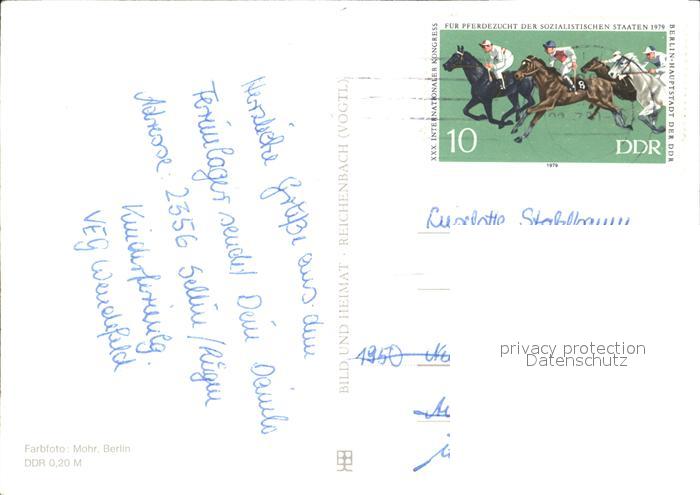 Herzliche Grüße aus dem
Ferienlager sendet Dein Danilo
Adresse: 2356 Sellin/Rügen
Kinderferienlg.
VEG
BILD UND HEIMAT · REICHENBACH (VOGTL)
XXX INTERNATIONALER KONGRESS FÜR PFERDEZUCHT DER SOZIALISTISCHEN STAATEN 1979 BERLIN-HAUPTSTADT DER DDR
8
10
DDR
1979
1950
privacy protection
Datenschutz
Farbfoto: Mohr, Berlin
DDR 0,20 M